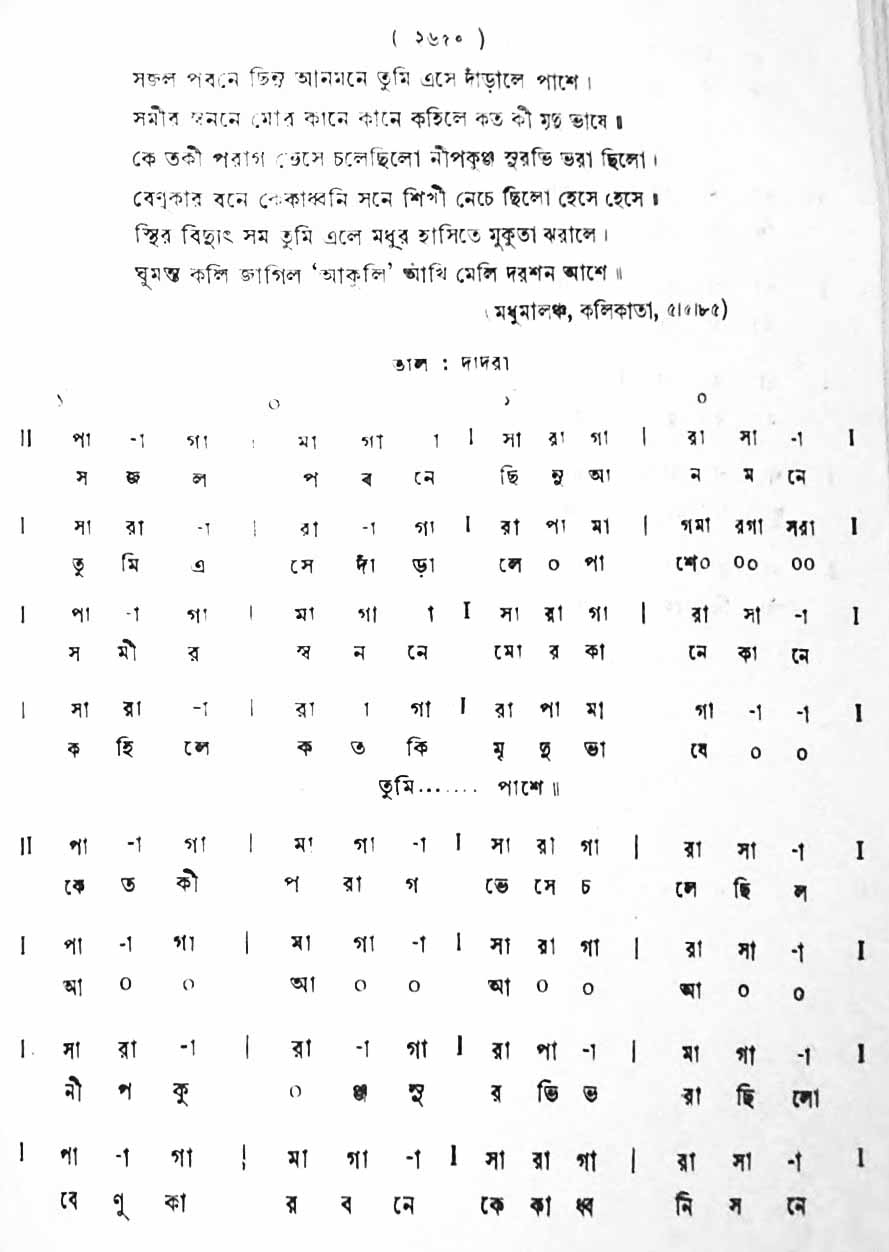 ( ২৬৭০ )
সজল পবনে ছিনু আনমনে তুমি এসে দাঁড়ালে পাশে।
সমীর স্বননে মোর কানে কানে কহিলে কত কী মৃদু ভাষে॥
কে তকী পরাগ ভেসে চলেছিলো নীপকুঞ্জ সুরভি ভরা ছিলো।
বেণুকার বনে কেকাধ্বনি সনে শিখী নেচে ছিলো হেসে হেসে॥
স্থির বিদ্যুৎ সম তুমি এলে মধুর হাসিতে মুকুতা ঝরালে।
ঘুমন্ত কলি জাগিল ‘আকুলি’ আঁখি মেলি দরশন আশে॥
(মধুমালঞ্চ, কলিকাতা, ৫।৫।৮৫)
তাল : দাদরা
১ ০ ১ ০
II পা -া গা | মা গা া I সা রা গা | রা সা -া I
স জ ল প ব নে ছি নু আ ন ম নে
I সা রা -া | রা -া গা I রা পা মা | গমা রগা সরা I
তু মি এ সে দাঁ ড়া লে ০ পা শে০ ০০ ০০
I পা -া গা | মা গা া I সা রা গা | রা সা -া I
স মী র স্ব ন নে মো র কা নে কা নে
I সা রা -া | রা া গা I রা পা মা গা -া -া I
ক হি লে ক ত কি মৃ দু ভা ষে ০ ০
তুমি....... পাশে॥
II পা -া গা | মা গা -া I সা রা গা | রা সা -া I
কে ত কী প রা গ ভে সে চ লে ছি ল
I পা -া গা | মা গা -া I সা রা গা | রা সা -া I
আ ০ ০ আ ০ ০ আ ০ ০ আ ০ ০
I সা রা -া | রা -া গা I রা পা -া | মা গা -া I
নী প কু ০ ঞ্জ সু র ভি ভ রা ছি লো
I পা -া গা | মা গা -া I সা রা গা | রা সা -া I
বে ণু কা র ব নে কে কা ধ্ব নি স নে